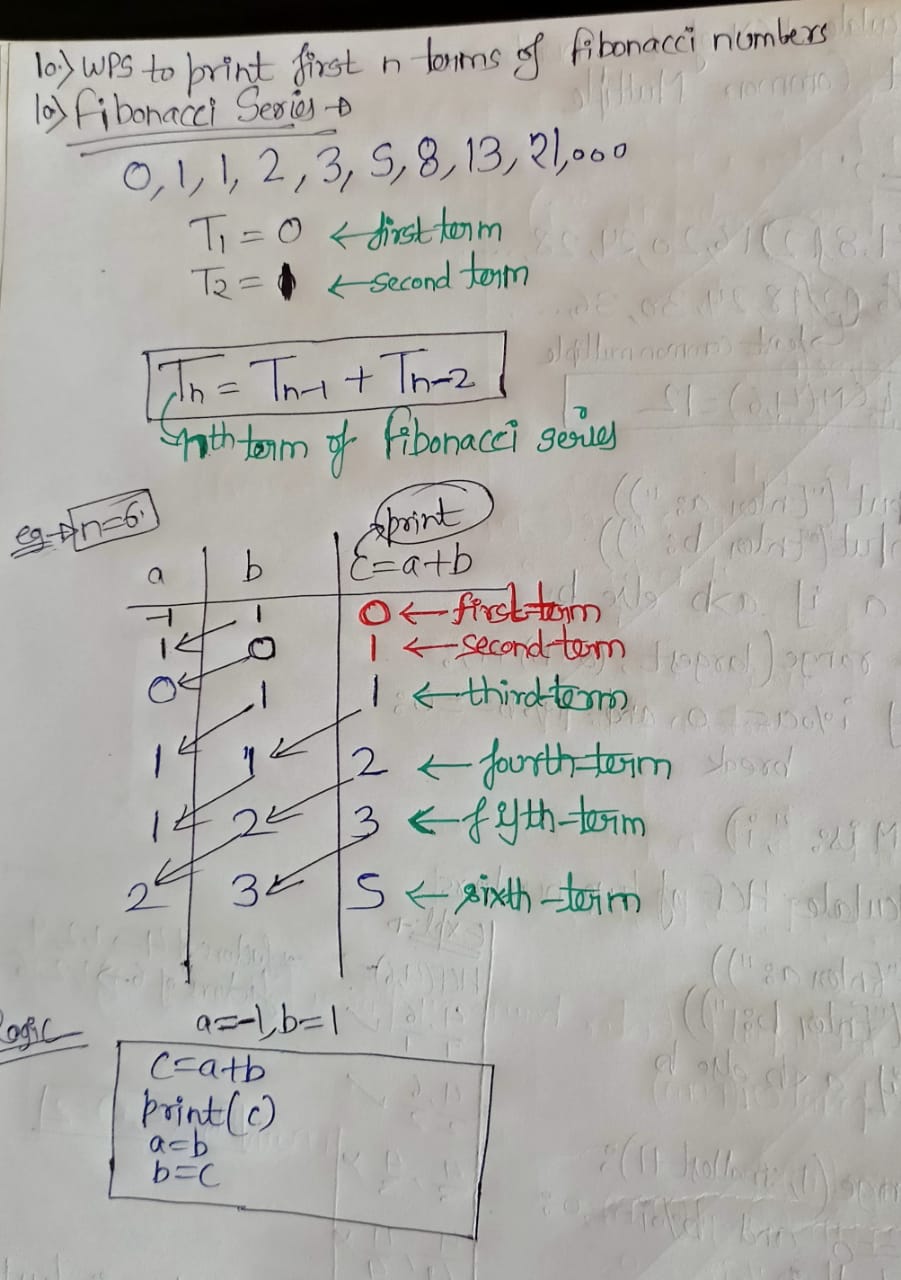 10.) WPS to print first n terms of fibonacci numbers
10) Fibonacci Series →
0, 1, 1, 2, 3, 5, 8, 13, 21,...
T1 = 0 ← first term
T2 = 1 ← second term
Tn = Tn-1 + Tn-2
nth term of fibonacci series
eg → n=6
print
a b c=a+b
-1 1 0 ← first-term
1 0 1 ← second-term
0 1 1 ← third-term
1 1 2 ← fourth-term
1 2 3 ← fifth-term
2 3 5 ← sixth-term
Logic a=-1, b=1
c=a+b
print(c)
a=b
b=c